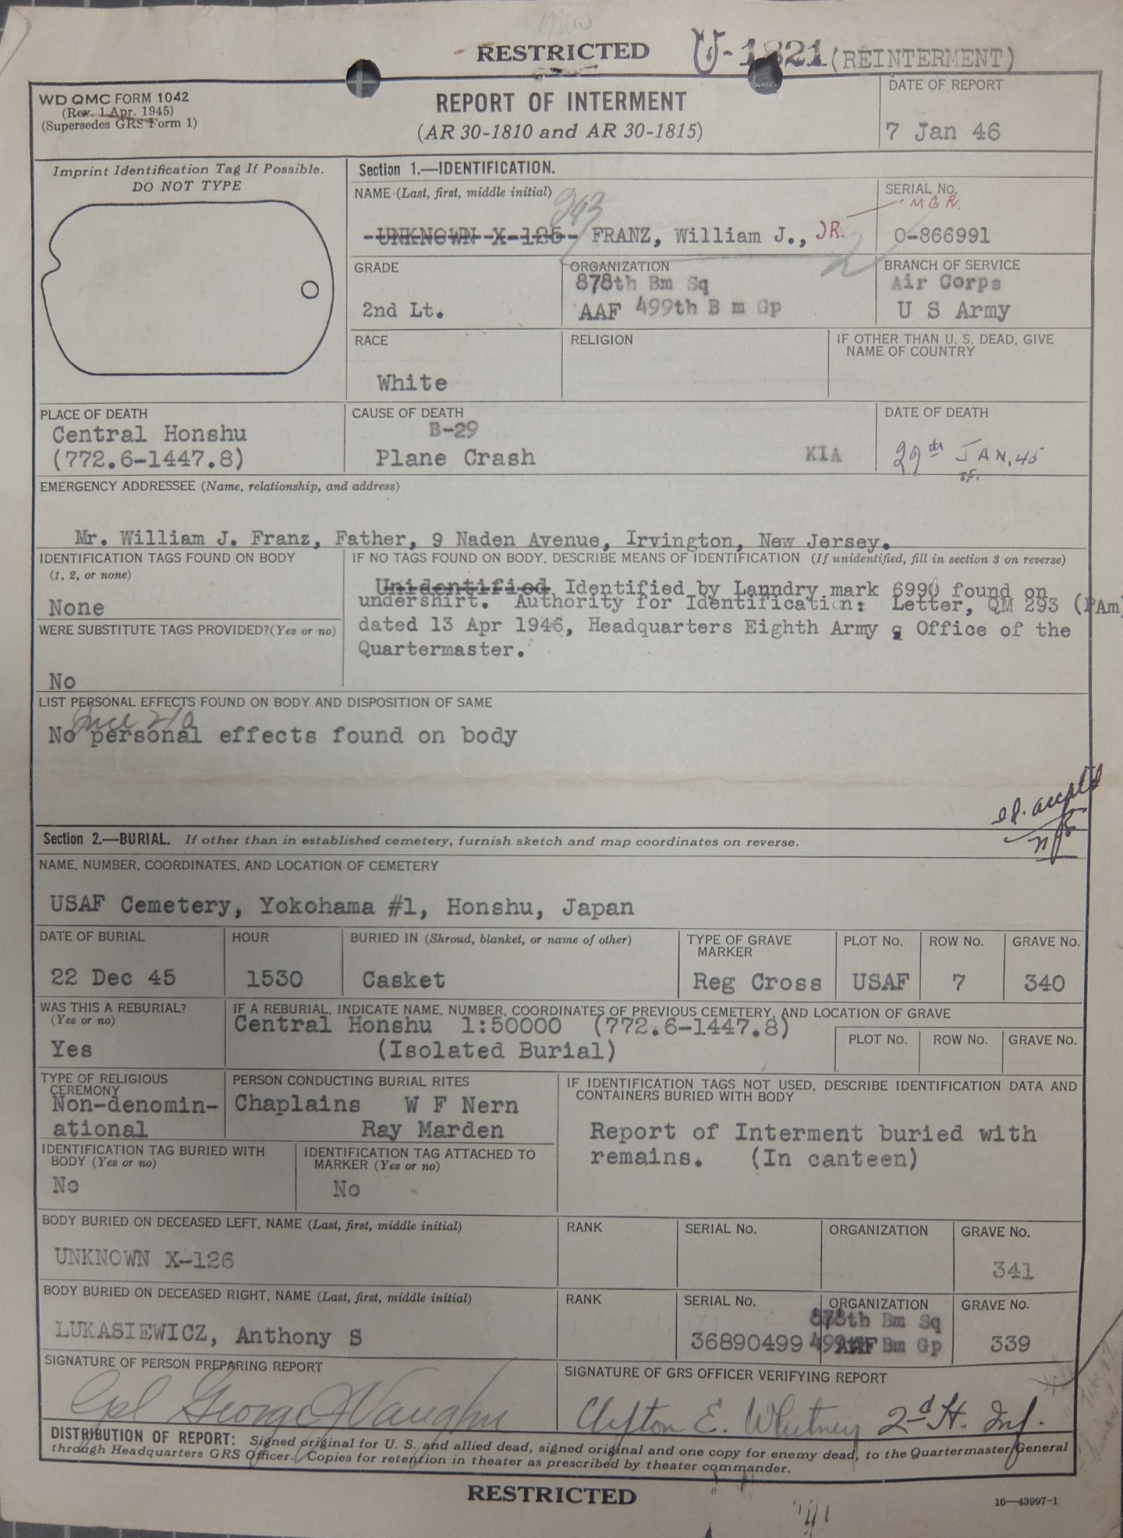 RESTRICTED U-1821 (REINTERMENT)
WD QMC FORM 1042
(Rev. 1 Apr. 1945)
(Supersedes GRS Form 1)
REPORT OF INTERMENT
(AR 30-1810 and AR 30-1815)
DATE OF REPORT
7 Jan 46
Imprint Identification Tag If Possible.
DO NOT TYPE
Section 1.—IDENTIFICATION.
NAME (Last, first, middle initial)
UNKNOWN X-125 FRANZ, William J., JR.
SERIAL No.
M.G.R.
O-866991
GRADE
2nd Lt.
ORGANIZATION
878th Bm Sq
AAF 499th B m Gp
BRANCH OF SERVICE
Air Corps
U S Army
RACE
White
RELIGION
IF OTHER THAN U. S. DEAD, GIVE
NAME OF COUNTRY
PLACE OF DEATH
Central Honshu
(772.6-1447.8)
CAUSE OF DEATH
B-29
Plane Crash KIA
DATE OF DEATH
29th JAN, 45
EMERGENCY ADDRESSEE (Name, relationship, and address)
Mr. William J. Franz, Father, 9 Naden Avenue, Irvington, New Jersey.
IDENTIFICATION TAGS FOUND ON BODY
(1, 2, or none)
None
WERE SUBSTITUTE TAGS PROVIDED? (Yes or no)
No
IF NO TAGS FOUND ON BODY, DESCRIBE MEANS OF IDENTIFICATION (If unidentified, fill in section 3 on reverse)
Unidentified Identified by Laundry mark 6990 found on
undershirt. Authority for Identification: Letter, QM 293 (PAm
dated 13 Apr 1946, Headquarters Eighth Army, Office of the
Quartermaster.
LIST PERSONAL EFFECTS FOUND ON BODY AND DISPOSITION OF SAME
No personal effects found on body
Section 2.—BURIAL. If other than in established cemetery, furnish sketch and map coordinates on reverse.
NAME, NUMBER, COORDINATES, AND LOCATION OF CEMETERY
USAF Cemetery, Yokohama #1, Honshu, Japan
DATE OF BURIAL
22 Dec 45
HOUR
1530
BURIED IN (Shroud, blanket, or name of other)
Casket
TYPE OF GRAVE
MARKER
Reg Cross
PLOT No.
USAF
ROW No.
7
GRAVE No.
340
WAS THIS A REBURIAL?
(Yes or no)
Yes
IF A REBURIAL, INDICATE NAME, NUMBER, COORDINATES OF PREVIOUS CEMETERY, AND LOCATION OF GRAVE
Central Honshu 1:50000 (772.6-1447.8)
(Isolated Burial)
PLOT No. ROW No. GRAVE No.
TYPE OF RELIGIOUS
CEREMONY
Non-denomin-
ational
PERSON CONDUCTING BURIAL RITES
Chaplains W F Nern
Ray Marden
IF IDENTIFICATION TAGS NOT USED, DESCRIBE IDENTIFICATION DATA AND
CONTAINERS BURIED WITH BODY
Report of Interment buried with
remains. (In canteen)
IDENTIFICATION TAG BURIED WITH
BODY (Yes or no)
No
IDENTIFICATION TAG ATTACHED TO
MARKER (Yes or no)
No
BODY BURIED ON DECEASED LEFT, NAME (Last, first, middle initial)
UNKNOWN X-126
RANK
SERIAL No.
ORGANIZATION
GRAVE No.
341
BODY BURIED ON DECEASED RIGHT, NAME (Last, first, middle initial)
LUKASIEWICZ, Anthony S
RANK
SERIAL No.
36890499
ORGANIZATION
878th Bm Sq
499 Bm Gp
GRAVE No.
339
SIGNATURE OF PERSON PREPARING REPORT
Cpl George J Vaughn
SIGNATURE OF GRS OFFICER VERIFYING REPORT
Clifton E. Whitney 2d Lt. Inf.
DISTRIBUTION OF REPORT: Signed original for U. S. and allied dead, signed original and one copy for enemy dead, to the Quartermaster General
through Headquarters GRS Officer. Copies for retention in theater as prescribed by theater commander.
RESTRICTED
16—43997-1